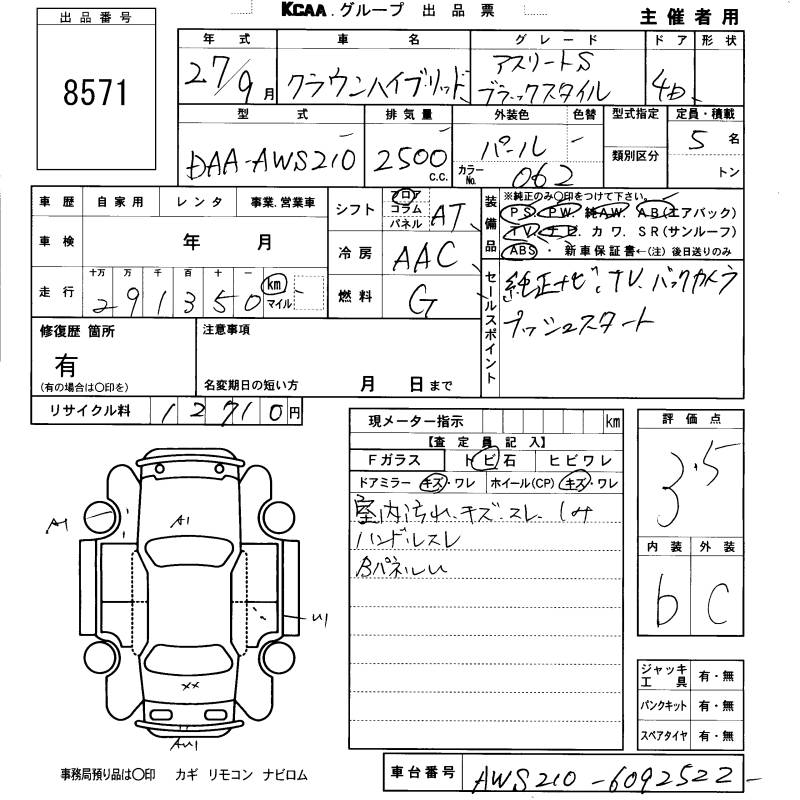 KCAA.グループ 出品票
主催者用
出品番号
8571
年式
27/9月
車名
クラウンハイブリッド
グレード
アスリートS
ブラックスタイル
ドア
4D
形状
型式
DAA-AWS210
排気量
2500 c.c.
外装色
パール
色替
カラーNo.
062
型式指定
類別区分
定員・積載
5名
トン
車歴 自家用 レンタ 事業.営業車
車検 年 月
走行
十万 万 千 百 十 一
291350
km
マイル
シフト
フロア
コラム
パネル
AT
冷房 AAC
燃料 G
装備品
※純正のみ〇印をつけて下さい。
PS. PW. 純AW. AB(エアバック)
TV. ナビ. カワ. SR(サンルーフ)
ABS・新車保証書←(注)後日送りのみ
セールスポイント
純正ナビ、TV、バックカメラ
プッシュスタート
修復歴 箇所
有
(有の場合は〇印を)
注意事項
名変期日の短い方 月 日まで
リサイクル料 12710円
現メーター指示 km
【査定員記入】
Fガラス トビ石 ヒビワレ
ドアミラー キズ・ワレ ホイール(CP) キズ・ワレ
室内汚れ、キズ、スレ、しみ
ハンドルスレ
BパネルU
評価点
3.5
内装 外装
b C
A1
A1
U1
××
AU1
ジャッキ
工具 有・無
パンクキット 有・無
スペアタイヤ 有・無
事務局預り品は〇印 カギ リモコン ナビロム
車台番号 AWS210-6092522-